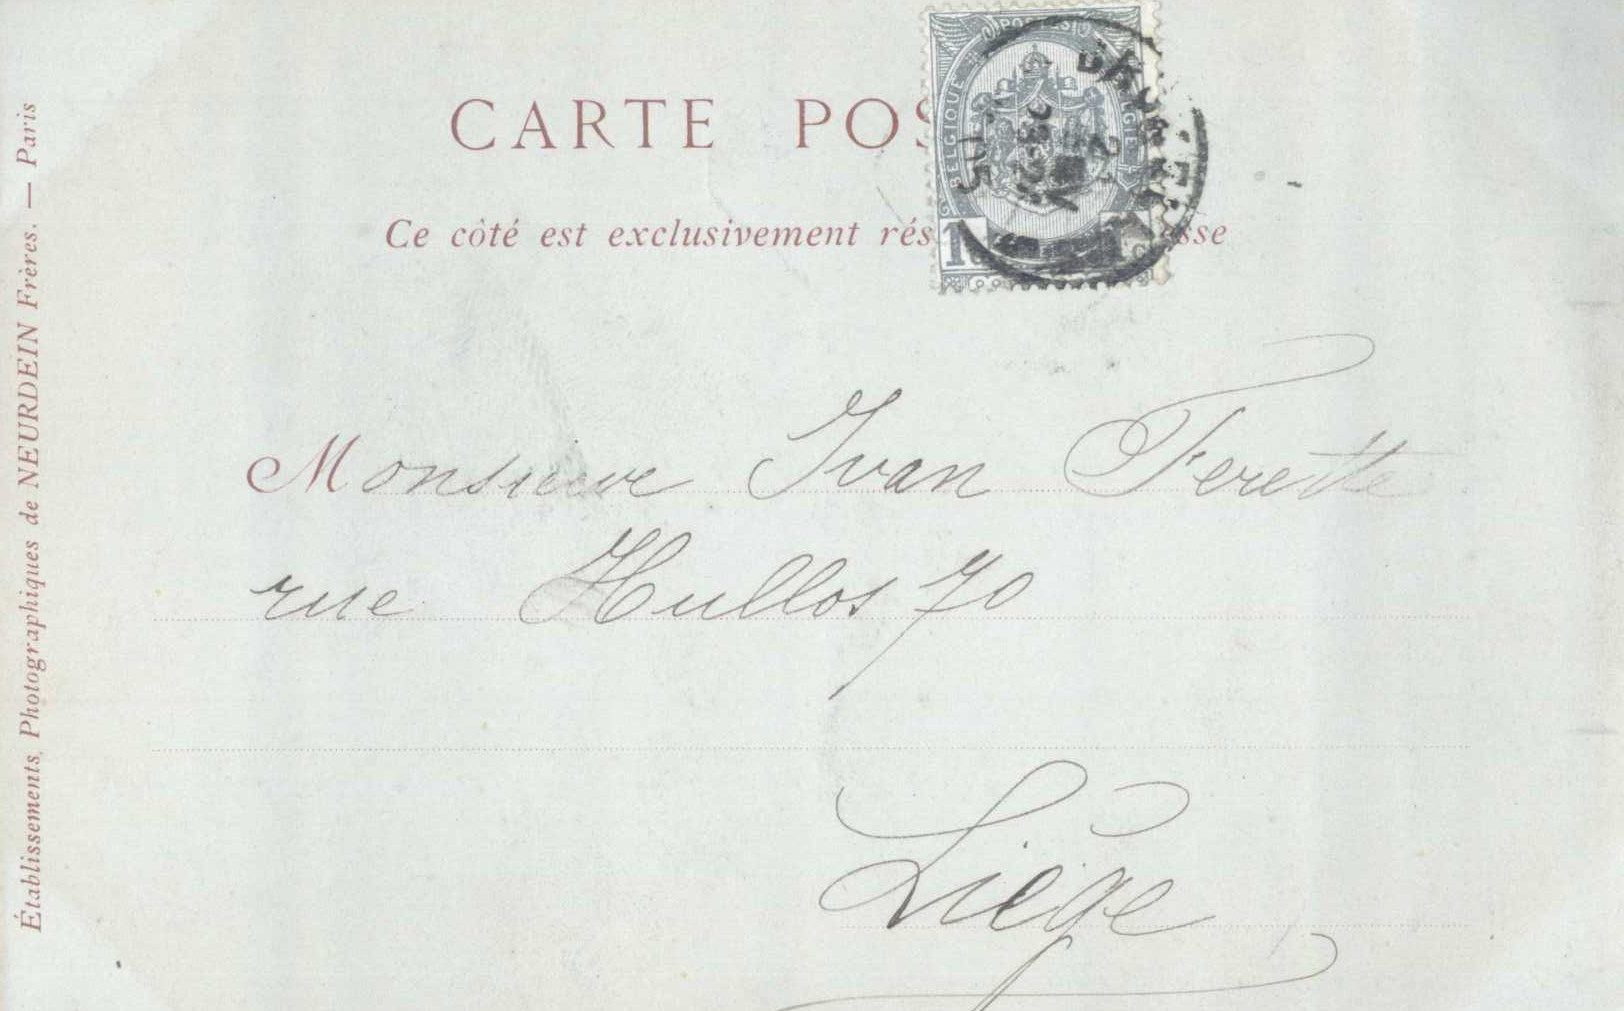 CARTE POS
Ce côté est exclusivement rés sse
BELGIQUE
1 1
05
Monsieur Ivan Ferette
rue Hullos 70
Liége
Établissements Photographiques de NEURDEIN Frères. — Paris